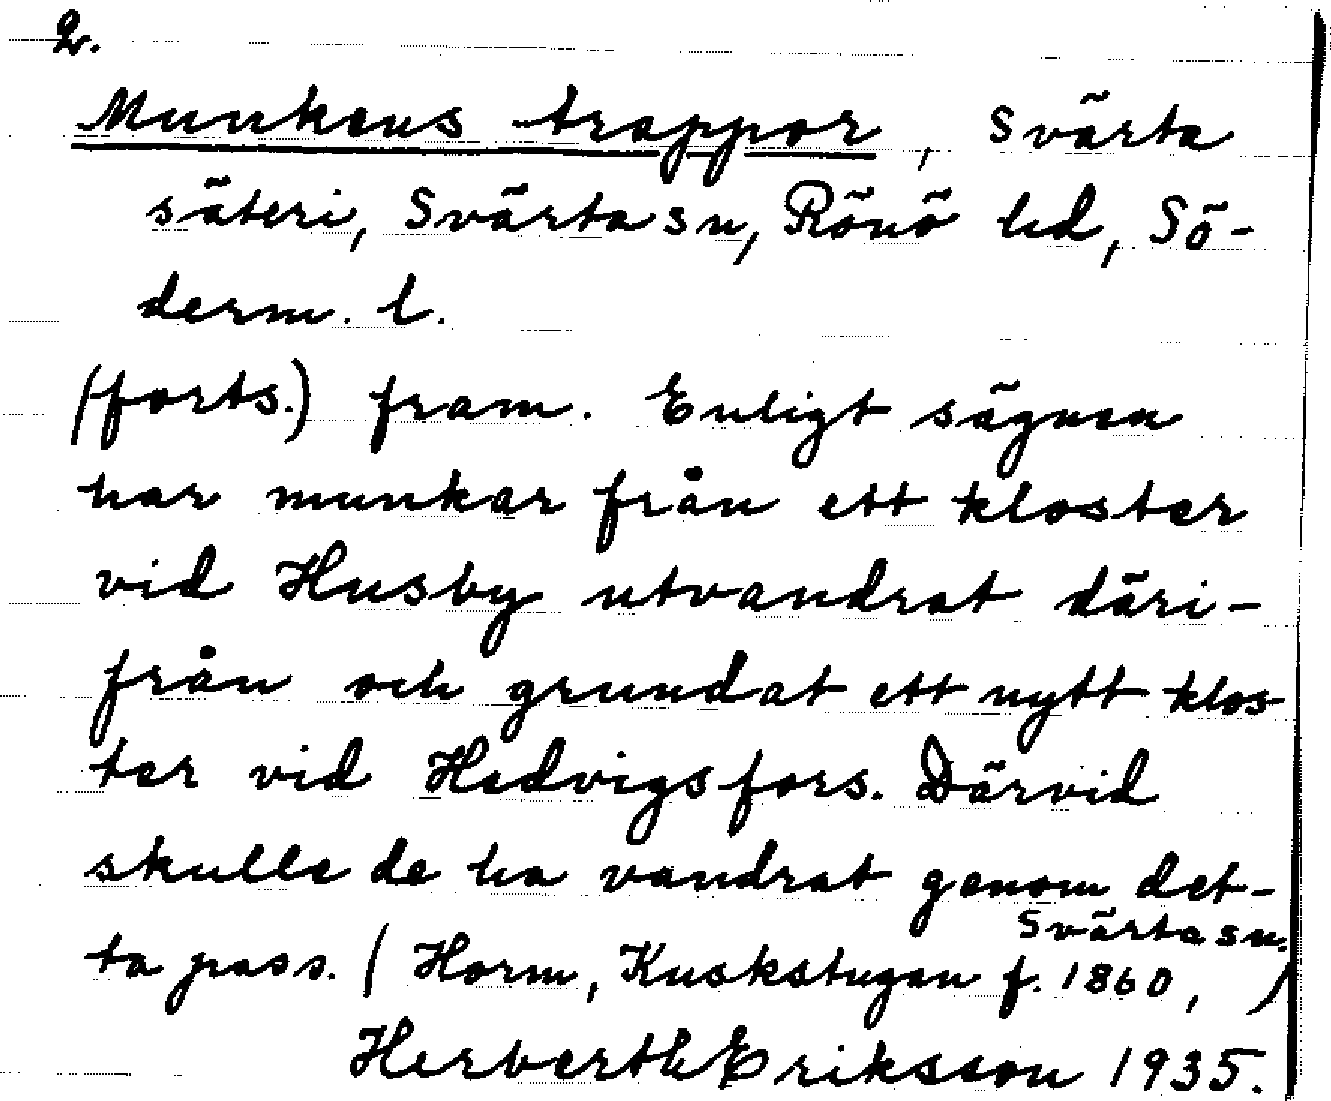 2.
Munkens trappor, Svärta
säteri, Svärta sn, Rönö hd, Sö-
derm. l.
(forts.) fram. Enligt sägnen
har munkar från ett kloster
vid Husby utvandrat däri-
från och grundat ett nytt klos
ter vid Hedvigsfors. Därvid
skulle de ha vandrat genom det-
ta pass. (Horm, Kuskstugan f. 1860, Svärta sn.)
Herberth Eriksson 1935.